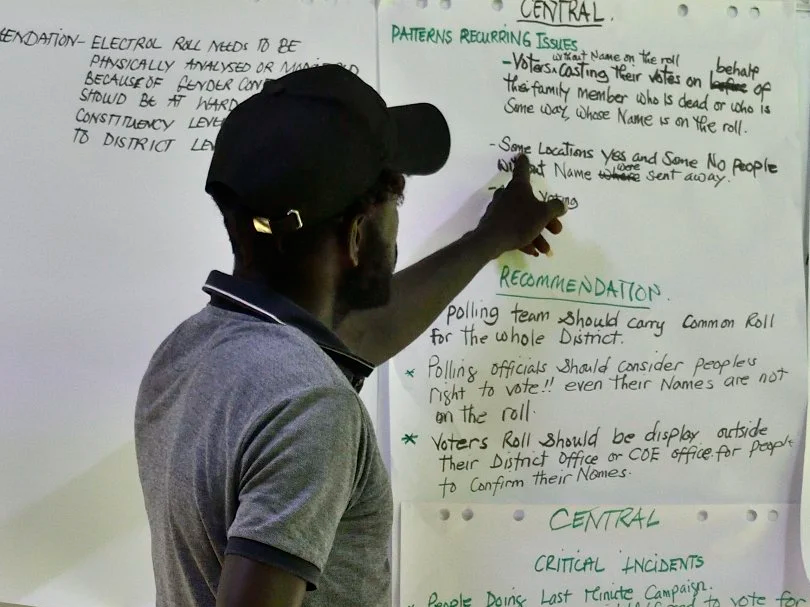 ENDATION- ELECTROL ROLL NEEDS TO BE
PHYSICALLY ANALYSED OR
BECAUSE OF GENDER
SHOULD BE AT WARD
CONSTITUENCY
TO DISTRICT
CENTRAL.
PATTERNS RECURRING ISSUES
without Name on the roll
- Voters casting their votes on behalf of
family member who is dead or who is
Some way, whose Name is on the roll.
- Some Locations YES and Some NO people
Name were sent away.
Voting
RECOMMENDATION.
polling team should carry Common Roll
for the whole District.
* Polling officials should consider people's
right to vote!! even their Names are not
on the roll.
* Voters Roll should be display outside
their District Office or COE office for people
to Confirm their Names.
CENTRAL
CRITICAL INCIDENTS
* People Doing Last Minute Campaign.
to vote for